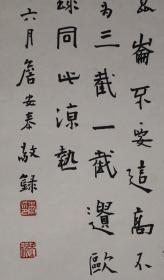 崙不要這高不
為三截一截遺歐
球同此涼熱
六月詹安泰敬録